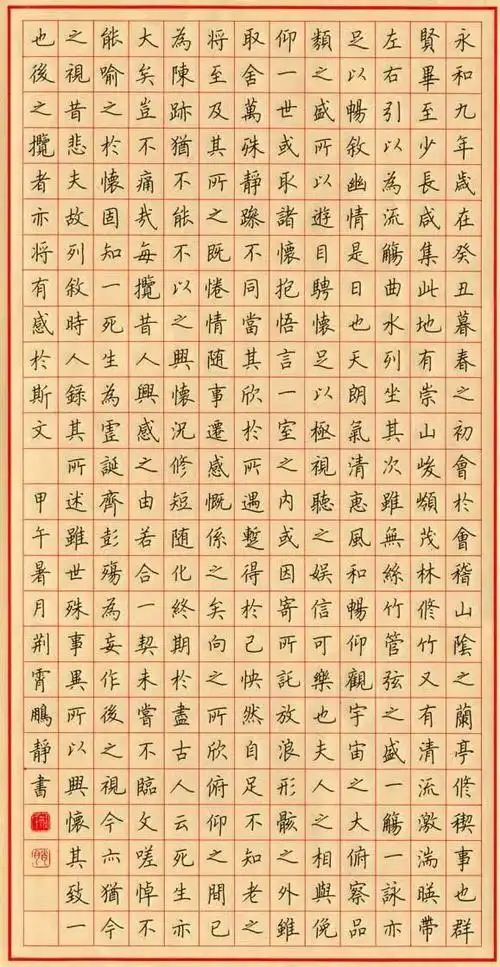 永和九年歲在癸丑暮春之初會於會稽山陰之蘭亭修禊事也群
賢畢至少長咸集此地有崇山峻領茂林修竹又有清流激湍暎帶
左右引以為流觴曲水列坐其次雖無絲竹管弦之盛一觴一詠亦
足以暢敘幽情是日也天朗氣清惠風和暢仰觀宇宙之大俯察品
類之盛所以遊目騁懷足以極視聽之娛信可樂也夫人之相與俛
仰一世或取諸懷抱悟言一室之內或因寄所託放浪形骸之外雖
取舍萬殊靜躁不同當其欣於所遇暫得於己快然自足不知老之
將至及其所之既惓情随事遷感慨係之矣向之所欣俯仰之間已
為陳跡猶不能不以之興懷況修短随化終期於盡古人云死生亦
大矣豈不痛哉每攬昔人興感之由若合一契未嘗不臨文嗟悼不
能喻之於懷固知一死生為虛誕齊彭殤為妄作後之視今亦猶今
之視昔悲夫故列敘時人錄其所述雖世殊事異所以興懷其致一
也後之攬者亦將有感於斯文 甲午暑月荆霄鵬靜書